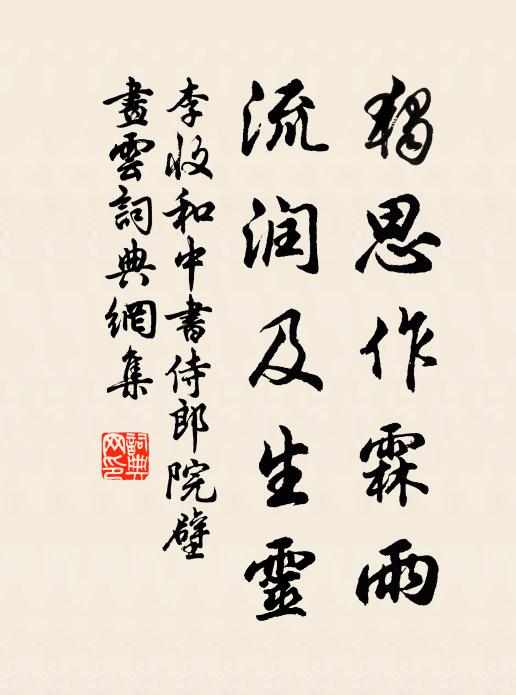 獨思作霖雨
流润及生靈
李收和中書侍郎院壁
畫雲詞典網集
詞典網印